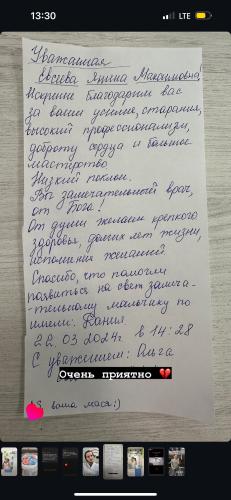 13:30
LTE
Уважаемая
Евсеева Янина Максимовна!
Искренне благодарим вас
за ваши усилие, старания,
высокий профессионализм,
доброту сердца и большое
мастерство
Низкий поклон.
Вы замечательный врач,
от Бога!
От души желаем крепкого
здоровья, долгих лет жизни,
исполнения желаний
Спасибо, что помогли
появиться на свет замеча-
-тельному мальчику по
имени: Дания
22.03 2024г. в 14:28
С уважением: Ольга
Очень приятно 💔
ваша мася:)